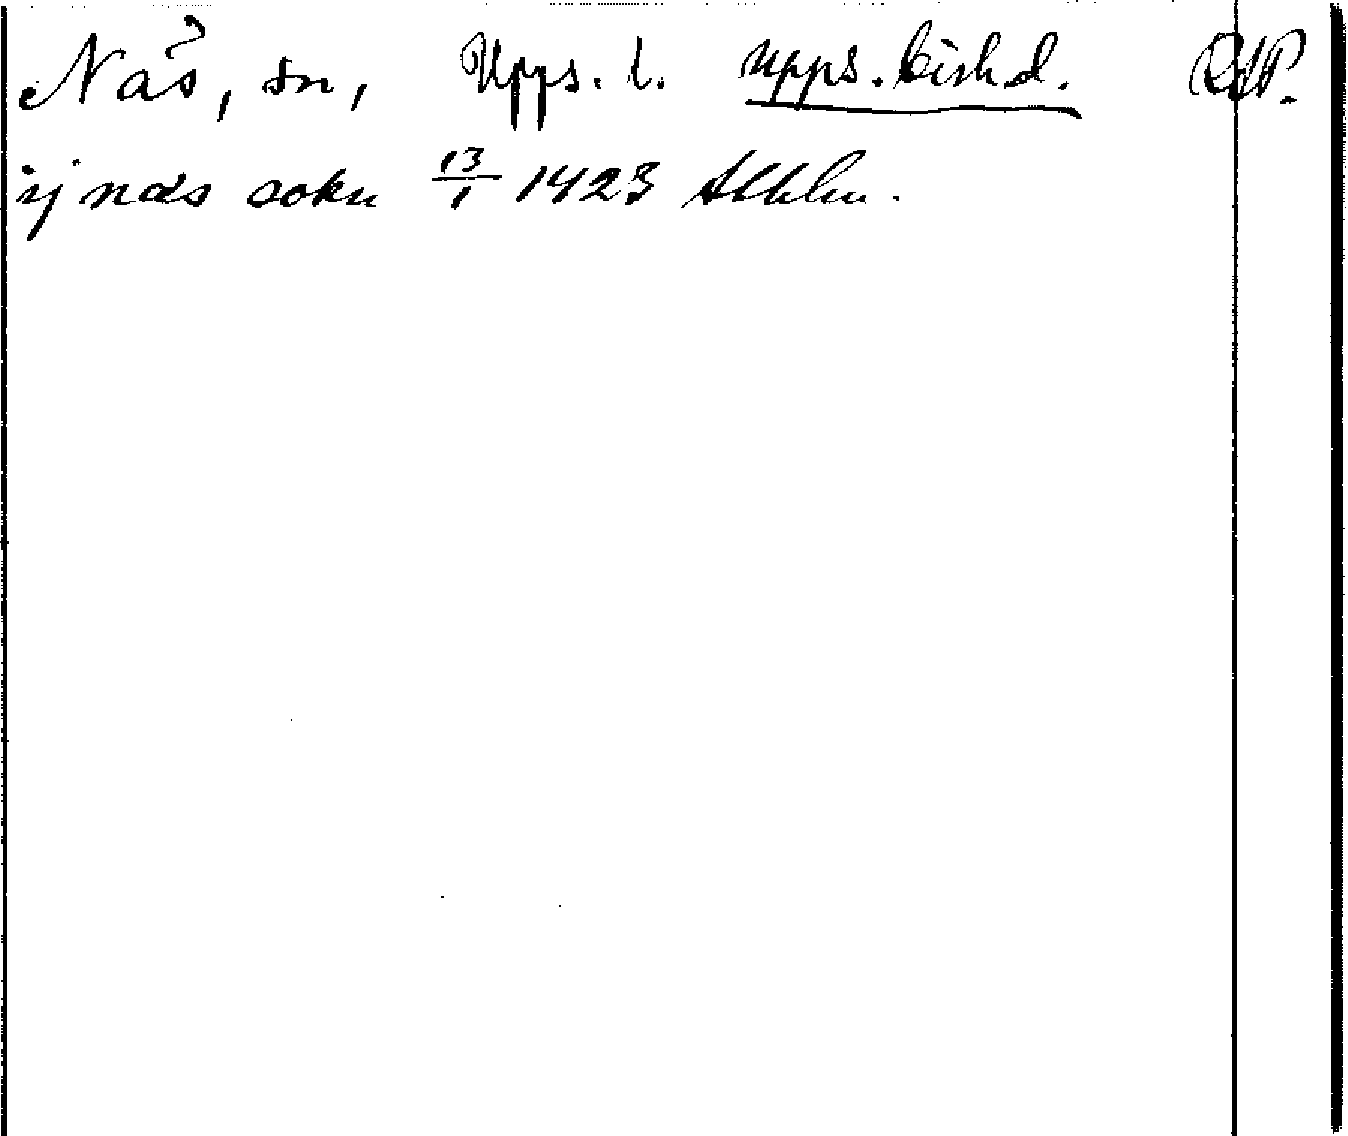 Nås, sn, Upps. l. upps. bishd. RAP.
ij nas sokn 13/1 1423 Sthlm.